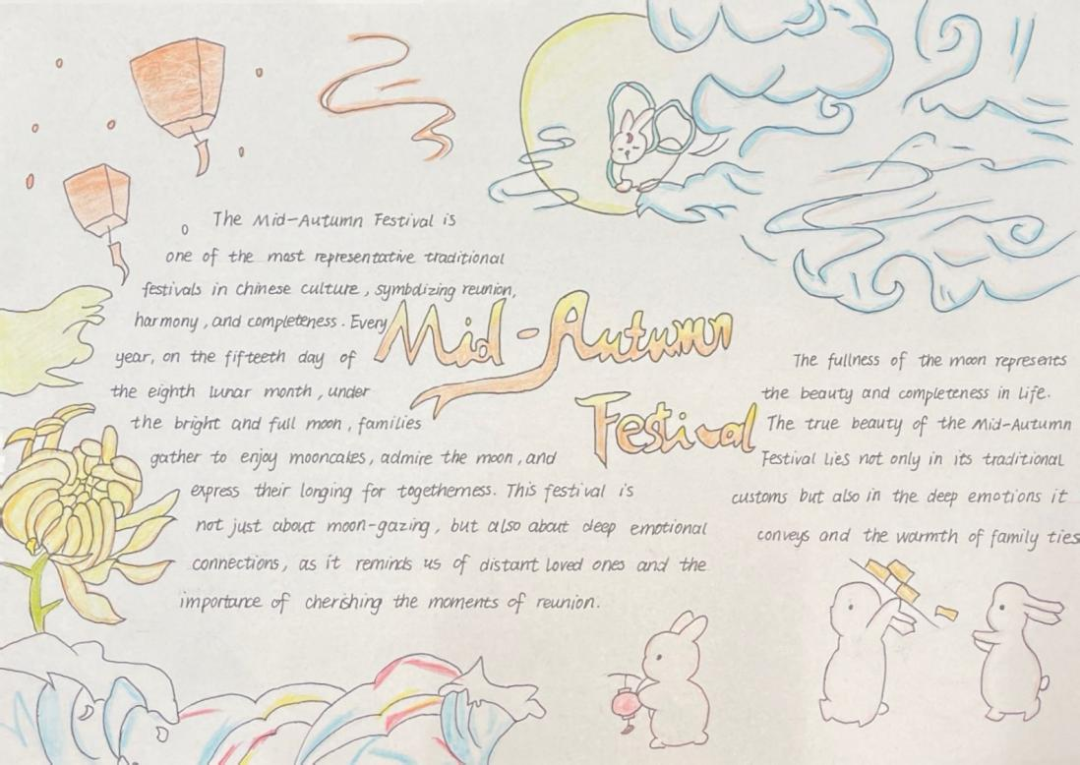 The Mid-Autumn Festival is
one of the most representative traditional
festivals in Chinese culture, symbolizing reunion,
harmony, and completeness. Every
year, on the fifteeth day of
the eighth lunar month, under
the bright and full moon, families
gather to enjoy mooncakes, admire the moon, and
express their longing for togetherness. This festival is
not just about moon-gazing, but also about deep emotional
connections, as it reminds us of distant loved ones and the
importance of cherishing the moments of reunion.
Mid-Autumn
Festival
The fullness of the moon represents
the beauty and completeness in life.
The true beauty of the Mid-Autumn
Festival lies not only in its traditional
customs but also in the deep emotions it
conveys and the warmth of family ties